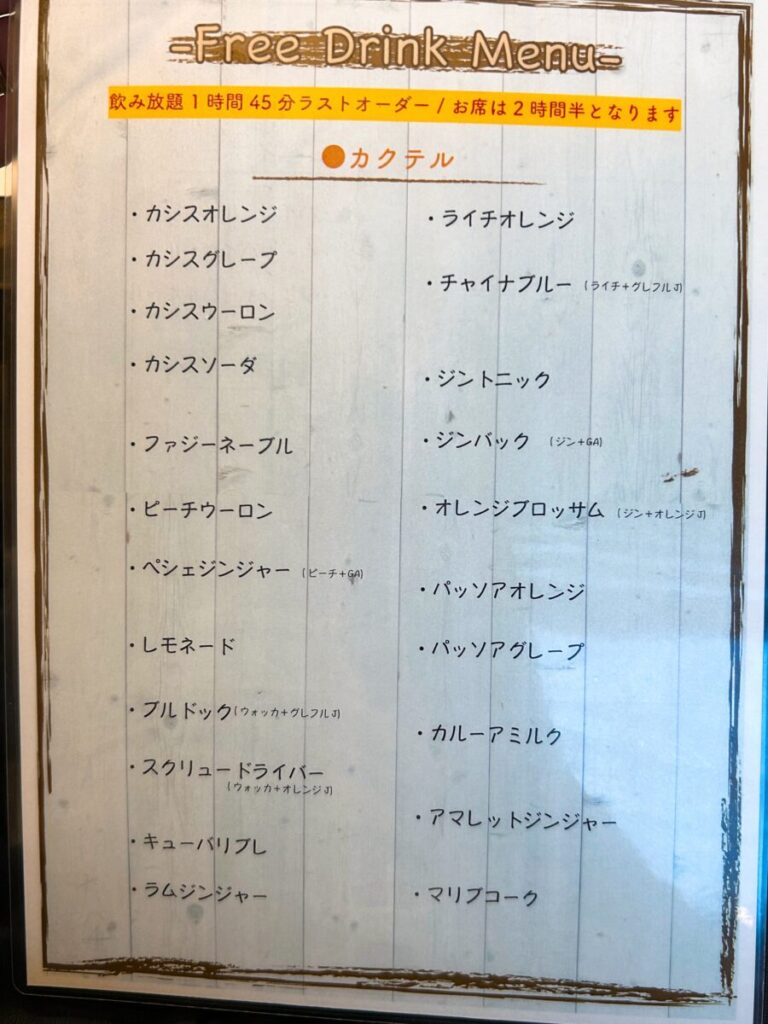 -Free Drink Menu-
飲み放題1時間45分ラストオーダー/お席は2時間半となります
●カクテル
・カシスオレンジ
・カシスグレープ
・カシスウーロン
・カシスソーダ
・ファジーネーブル
・ピーチウーロン
・ペシェジンジャー (ピーチ+GA)
・レモネード
・ブルドック(ウォッカ+グレフルJ)
・スクリュードライバー
(ウォッカ+オレンジJ)
・キューバリブレ
・ラムジンジャー
・ライチオレンジ
・チャイナブルー (ライチ+グレフルJ)
・ジントニック
・ジンバック (ジン+GA)
・オレンジブロッサム (ジン+オレンジJ)
・パッソアオレンジ
・パッソアグレープ
・カルーアミルク
・アマレットジンジャー
・マリブコーク